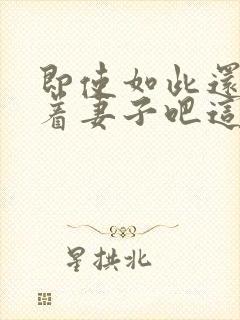 即使如此還
着妻子吧這
星拱北